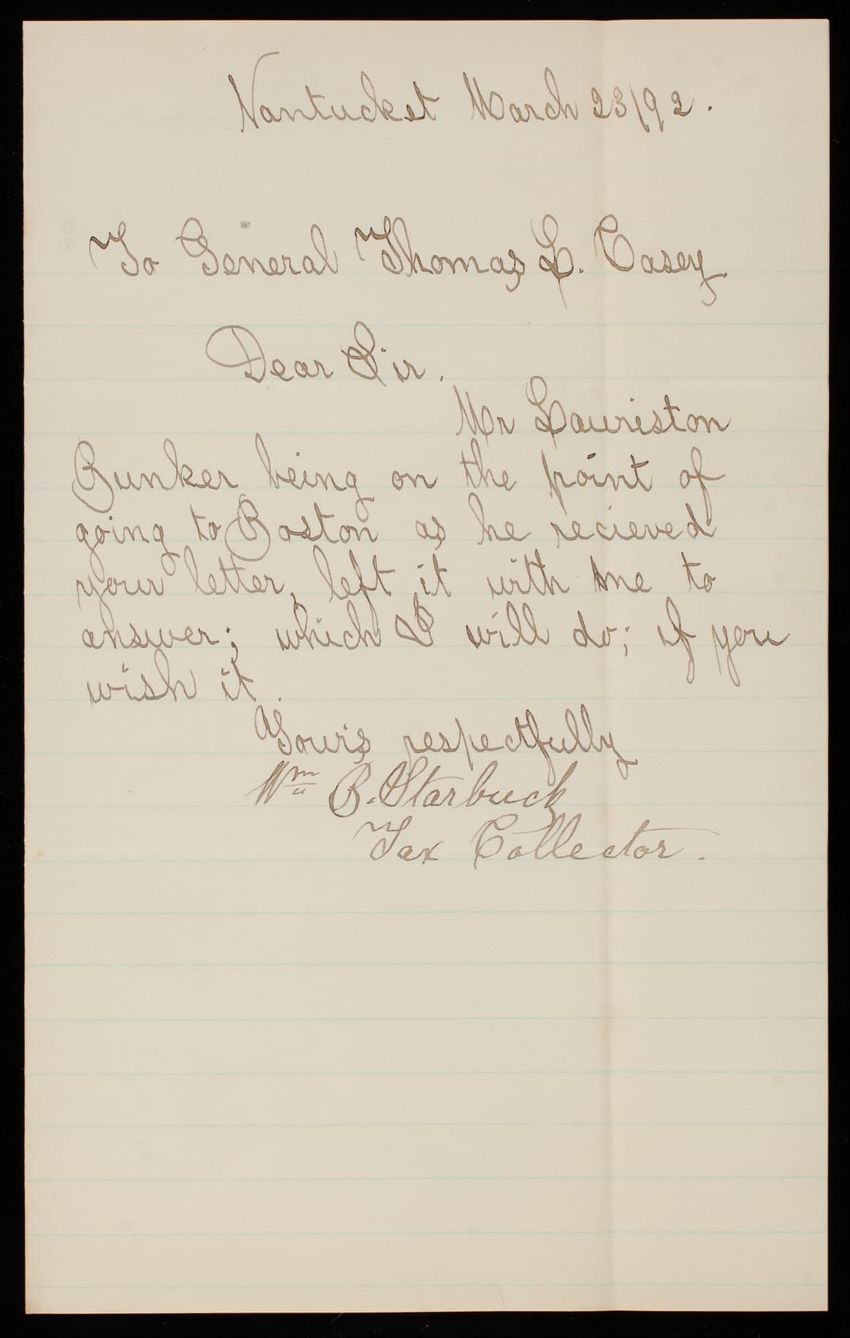 Nantucket March 23/92.
To General Thomas L. Casey
Dear Sir.
Mr Lauriston
Bunker being on the point of
going to Boston as he recieved
your letter, left it with me to
answer; which I will do; if you
wish it.
Yours respectfully
Wm B. Starbuck
Tax Collector.